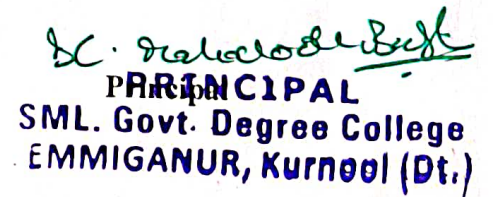 Principal
PRINCIPAL
SML. Govt. Degree College
EMMIGANUR, Kurnool (Dt.)